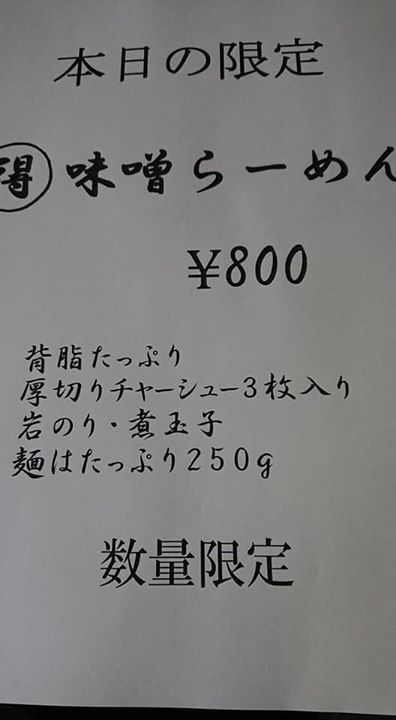 本日の限定
得 味噌らーめん
¥800
背脂たっぷり
厚切りチャーシュー3枚入り
岩のり・煮玉子
麺はたっぷり250g
数量限定